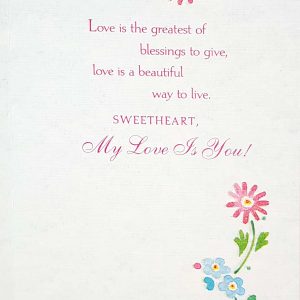 Love is the greatest of
blessings to give,
love is a beautiful
way to live.
SWEETHEART,
My Love Is You!